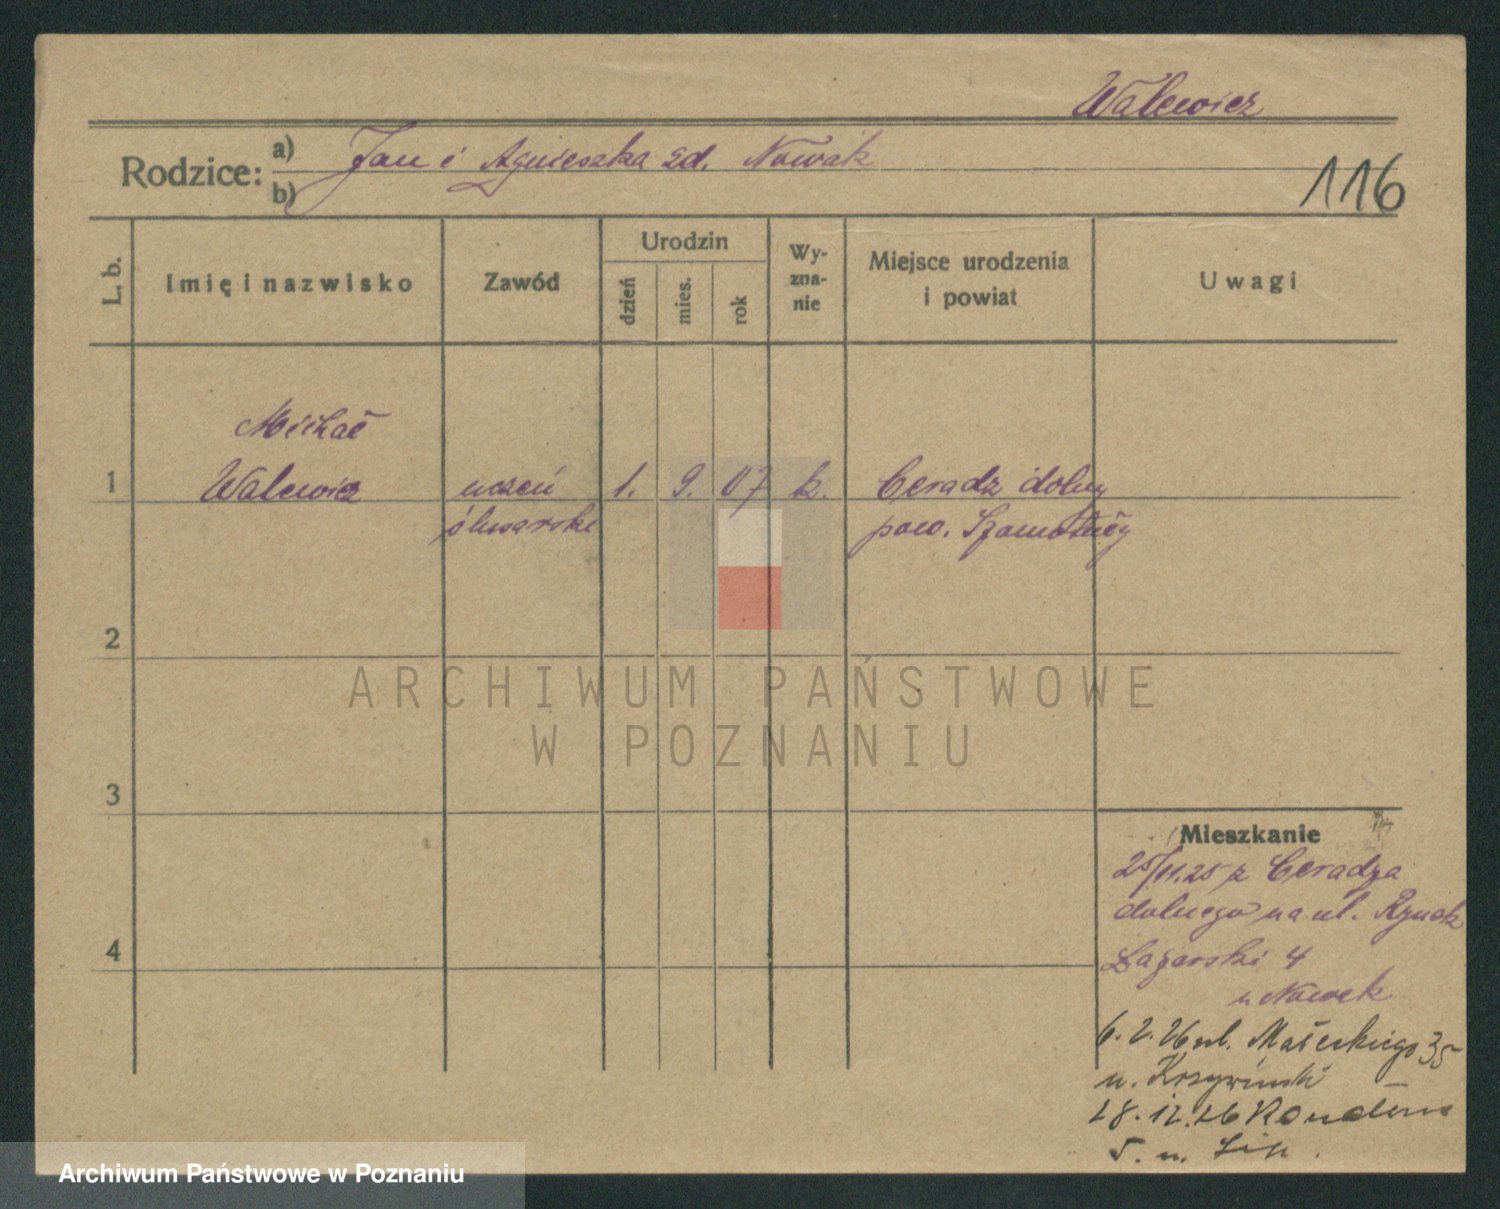 Walewicz
Rodzice: a) Jan i Agnieszka zd. Nowak
b)
116
L. b.
Imię i nazwisko
Zawód
Urodzin
dzień
mies.
rok
Wy-
zna-
nie
Miejsce urodzenia
i powiat
Uwagi
Michał
1 Walewicz uczeń 1. 9. 07 k. Ceradz dolny
ślusarski pow. Szamotuły
2
3
4
ARCHIWUM PAŃSTWOWE
W POZNANIU
Mieszkanie
25/11.25 z Ceradza
dolnego na ul. Rynek
Łazarski 4
u Nowak
6. 2. 26 ul. Małeckiego 35
u. Krzywiński
28. 12. 26
5. u.
Archiwum Państwowe w Poznaniu